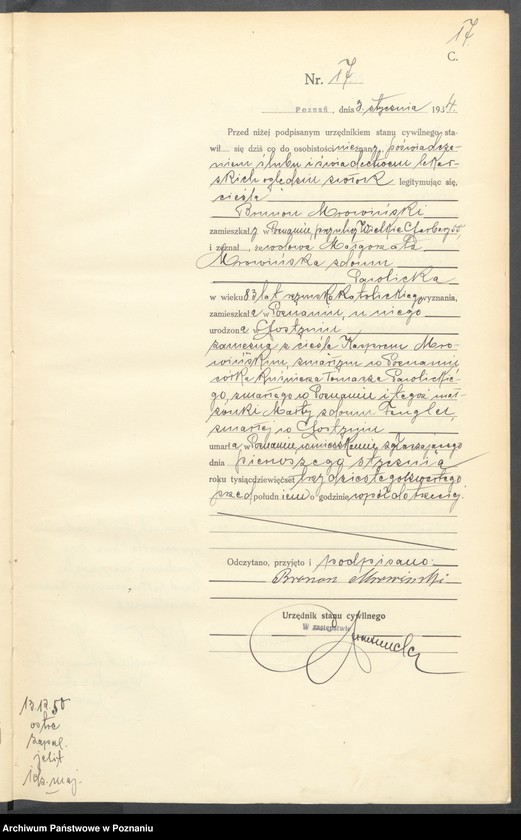 17
C.
Nr. 17
Poznań, dnia 3 stycznia 1934.
Przed niżej podpisanym urzędnikiem stanu cywilnego sta-
wił się dziś co do osobistości nieznany, poświadcze-
niem ślubu i świadectwem lekar-
skich oględzin zwłok legitymując się,
cieśla
Brunon Mrowiński
zamieszkały w Poznaniu, przy ulicy Wielkie Garbary
i zeznał, że wdowa Małgorzata
Mrowińska z domu
Pawlicka
w wieku 83 lat rzymsko katolickiego wyznania,
zamieszkała w Poznaniu, u niego
urodzona w Gostyniu
zamężna z cieślą Kasprem Mro-
wińskim, zmarłym w Poznaniu
córka kuśnierza Tomasza Pawlickie-
go, zmarłego w Poznaniu i tegoż mał-
żonki Marty z domu
zmarłej w Gostyniu
umarła w Poznaniu, w mieszkaniu zgłaszającego
dnia pierwszego stycznia
roku tysiącdziewięćset trzydziestego czwartego
przed południem o godzinie wpół do trzeciej.
Odczytano, przyjęto i podpisano:
Brunon Mrowiński
Urzędnik stanu cywilnego
W zastępstwie
13.12.50
ostre
zapal.
jelit
Archiwum Państwowe w Poznaniu